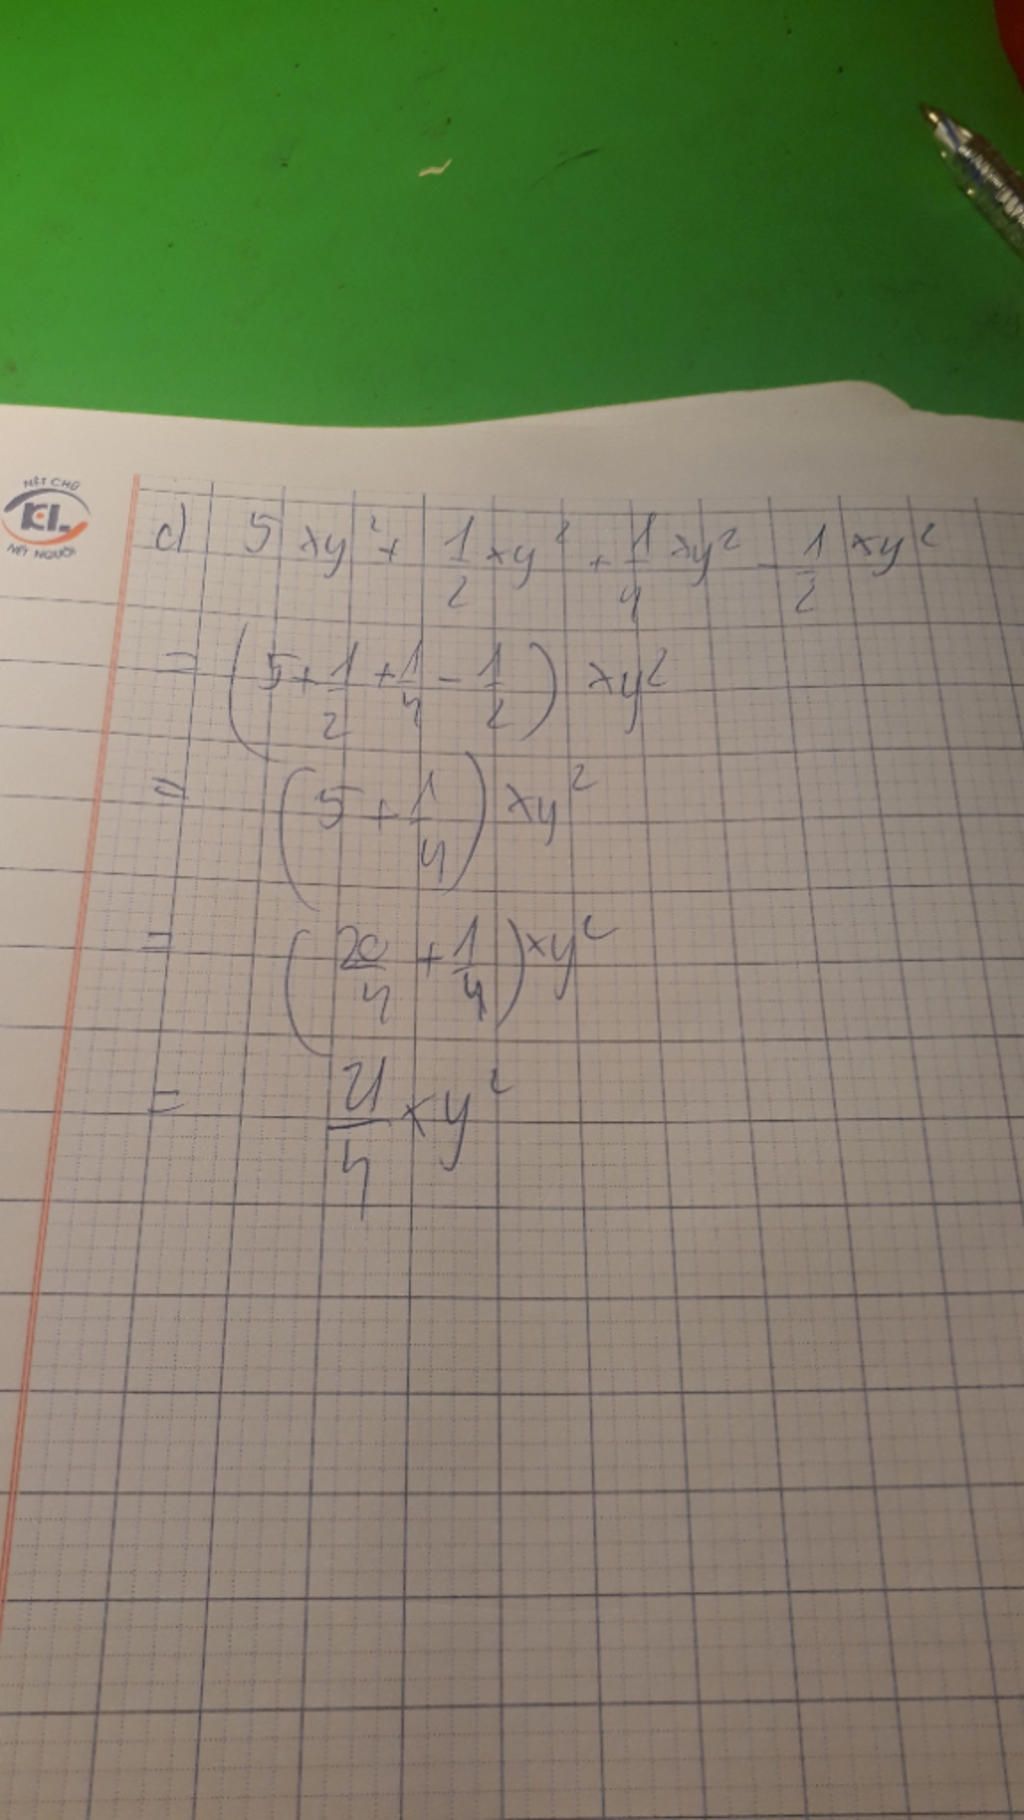 NÉT CHỮ
KL
NẾT NGƯỜI
d) 5 xy² + 1/2 xy² + 1/4 xy² - 1/2 xy²
= (5 + 1/2 + 1/4 - 1/2) xy²
= (5 + 1/4) xy²
= (20/4 + 1/4) xy²
= 21/4 xy²